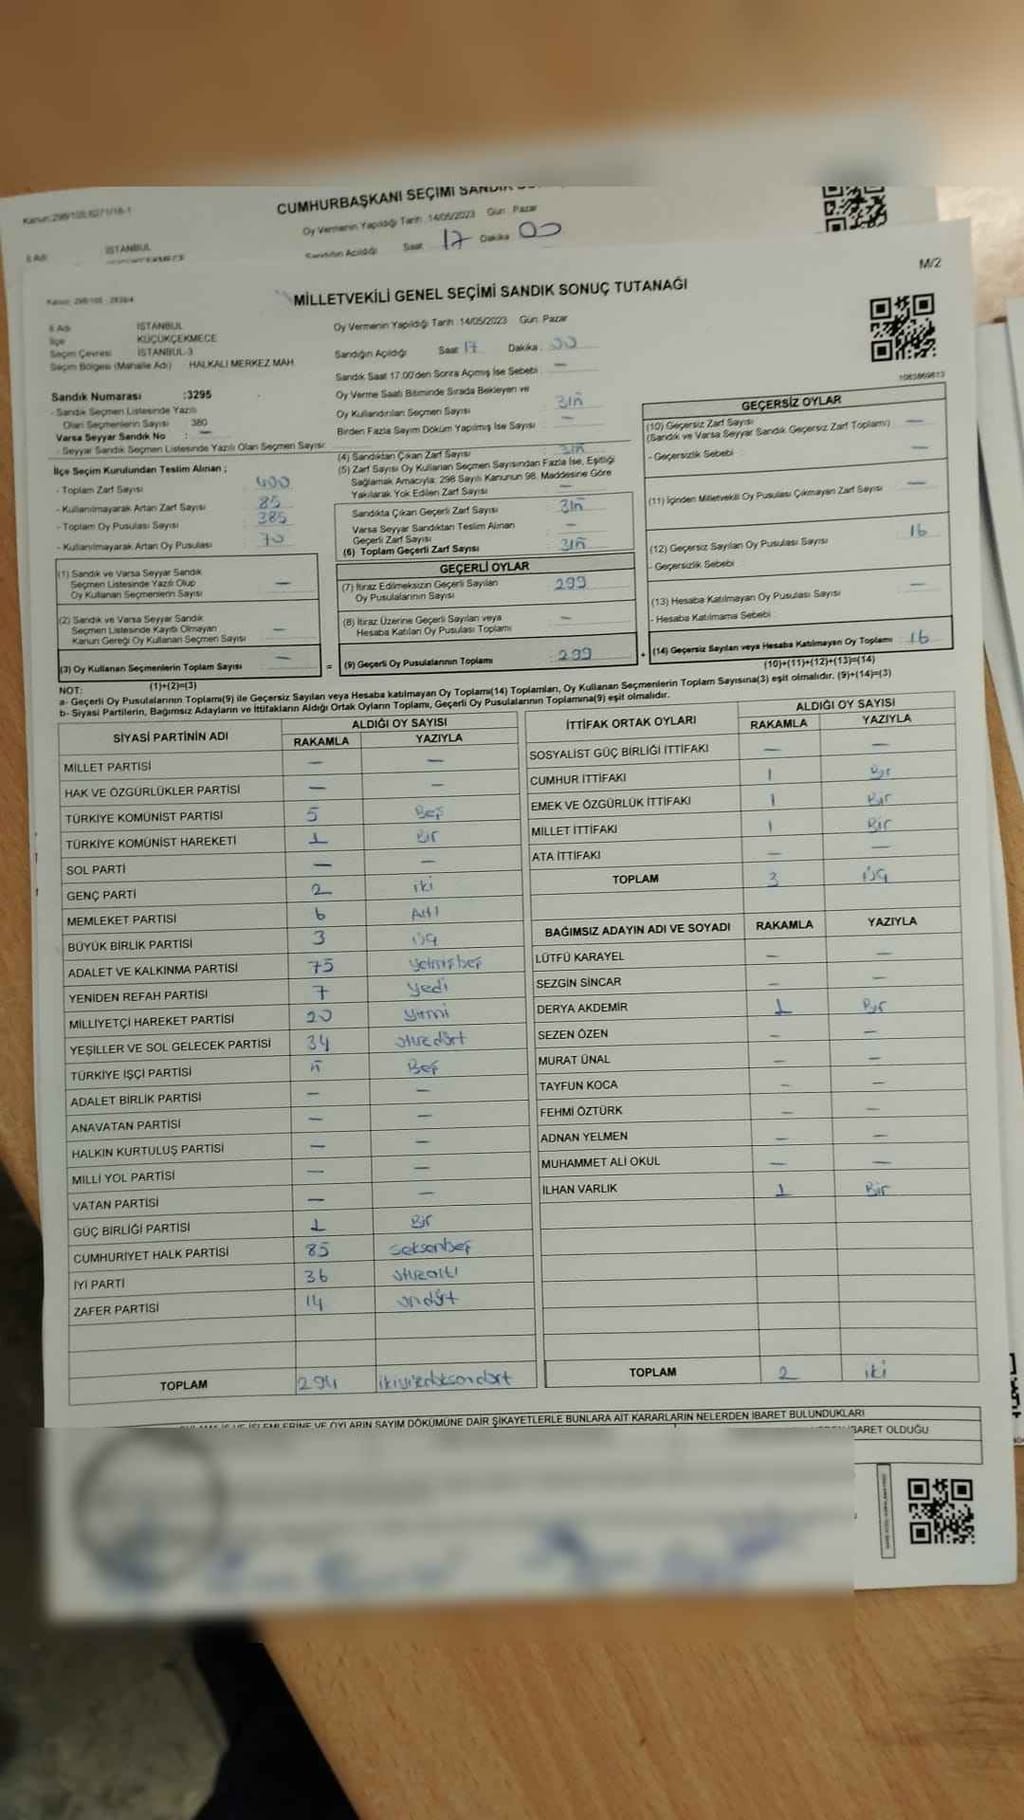 Kanun: 298/105,6271/18-1
CUMHURBAŞKANI SEÇİMİ SANDIK
Oy Vermenin Yapıldığı Tarih :14/05/2023 Gün: Pazar
İl Adı İSTANBUL
Sandığın Açıldığı Saat 17 Dakika 00
M/2
MİLLETVEKİLİ GENEL SEÇİMİ SANDIK SONUÇ TUTANAĞI
İl Adı İSTANBUL
İlçe KÜÇÜKÇEKMECE
Seçim Çevresi İSTANBUL-3
Seçim Bölgesi (Mahalle Adı) HALKALI MERKEZ MAH.
Oy Vermenin Yapıldığı Tarih :14/05/2023 Gün: Pazar
Sandığın Açıldığı Saat 17 Dakika 00
Sandık Saat 17.00'den Sonra Açmış İse Sebebi —
Oy Verme Saati Bitiminde Sırada Bekleyen ve
Oy Kullandırılan Seçmen Sayısı
Birden Fazla Sayım Döküm Yapılmış İse Sayısı —
Sandık Numarası :3295
- Sandık Seçmen Listesinde Yazılı
Olan Seçmenlerin Sayısı 380
Varsa Seyyar Sandık No : —
- Seyyar Sandık Seçmen Listesinde Yazılı Olan Seçmen Sayısı:
İlçe Seçim Kurulundan Teslim Alınan ;
- Toplam Zarf Sayısı 400
- Kullanılmayarak Artan Zarf Sayısı 85
- Toplam Oy Pusulası Sayısı 385
- Kullanılmayarak Artan Oy Pusulası 70
(1) Sandık ve Varsa Seyyar Sandık
Seçmen Listesinde Yazılı Olup
Oy Kullanan Seçmenlerin Sayısı —
(2) Sandık ve Varsa Seyyar Sandık
Seçmen Listesinde Kayıtlı Olmayan
Kanun Gereği Oy Kullanan Seçmen Sayısı —
(3) Oy Kullanan Seçmenlerin Toplam Sayısı —
(1)+(2)=(3)
(4) Sandıktan Çıkan Zarf Sayısı
(5) Zarf Sayısı Oy Kullanan Seçmen Sayısından Fazla İse, Eşitliği
Sağlamak Amacıyla; 298 Sayılı Kanunun 98. Maddesine Göre
Yakılarak Yok Edilen Zarf Sayısı —
Sandıkta Çıkan Geçerli Zarf Sayısı
Varsa Seyyar Sandıktan Teslim Alınan
Geçerli Zarf Sayısı —
(6) Toplam Geçerli Zarf Sayısı
GEÇERLİ OYLAR
(7) İtiraz Edilmeksizin Geçerli Sayılan
Oy Pusulalarının Sayısı 299
(8) İtiraz Üzerine Geçerli Sayılan veya
Hesaba Katılan Oy Pusulası Toplamı —
= (9) Geçerli Oy Pusulalarının Toplamı 299 +
1083869813
GEÇERSİZ OYLAR
(10) Geçersiz Zarf Sayısı
(Sandık ve Varsa Seyyar Sandık Geçersiz Zarf Toplamı) —
- Geçersizlik Sebebi : —
(11) İçinden Milletvekili Oy Pusulası Çıkmayan Zarf Sayısı —
(12) Geçersiz Sayılan Oy Pusulası Sayısı 16
- Geçersizlik Sebebi :
(13) Hesaba Katılmayan Oy Pusulası Sayısı —
- Hesaba Katılmama Sebebi :
(14) Geçersiz Sayılan veya Hesaba Katılmayan Oy Toplamı 16
(10)+(11)+(12)+(13)=(14)
NOT:
a- Geçerli Oy Pusulasının Toplamı(9) ile Geçersiz Sayılan veya Hesaba katılmayan Oy Toplamı(14) Toplamları, Oy Kullanan Seçmenlerin Toplam Sayısına(3) eşit olmalıdır. (9)+(14)=(3)
b- Siyasi Partilerin, Bağımsız Adayların ve İttifakların Aldığı Ortak Oyların Toplamı, Geçerli Oy Pusulasının Toplamına(9) eşit olmalıdır.
SİYASİ PARTİNİN ADI ALDIĞI OY SAYISI
RAKAMLA YAZIYLA
MİLLET PARTİSİ — —
HAK VE ÖZGÜRLÜKLER PARTİSİ — —
TÜRKİYE KOMÜNİST PARTİSİ 5 Beş
TÜRKİYE KOMÜNİST HAREKETİ 1 Bir
SOL PARTİ — —
GENÇ PARTİ 2 iki
MEMLEKET PARTİSİ 6 Altı
BÜYÜK BİRLİK PARTİSİ 3 Üç
ADALET VE KALKINMA PARTİSİ 75 yetmişbeş
YENİDEN REFAH PARTİSİ 7 yedi
MİLLİYETÇİ HAREKET PARTİSİ 20 yirmi
YEŞİLLER VE SOL GELECEK PARTİSİ 34 otuzdört
TÜRKİYE İŞÇİ PARTİSİ 5 Beş
ADALET BİRLİK PARTİSİ — —
ANAVATAN PARTİSİ — —
HALKIN KURTULUŞ PARTİSİ — —
MİLLİ YOL PARTİSİ — —
VATAN PARTİSİ — —
GÜÇ BİRLİĞİ PARTİSİ 1 Bir
CUMHURİYET HALK PARTİSİ 85 seksenbeş
İYİ PARTİ 36 otuzaltı
ZAFER PARTİSİ 14 ondört
TOPLAM 294 ikiyüzdoksandört
İTTİFAK ORTAK OYLARI ALDIĞI OY SAYISI
RAKAMLA YAZIYLA
SOSYALİST GÜÇ BİRLİĞİ İTTİFAKI — —
CUMHUR İTTİFAKI 1 Bir
EMEK VE ÖZGÜRLÜK İTTİFAKI 1 Bir
MİLLET İTTİFAKI 1 Bir
ATA İTTİFAKI — —
TOPLAM 3 Üç
BAĞIMSIZ ADAYIN ADI VE SOYADI RAKAMLA YAZIYLA
LÜTFÜ KARAYEL — —
SEZGİN SİNCAR — —
DERYA AKDEMİR 1 Bir
SEZEN ÖZEN — —
MURAT ÜNAL — —
TAYFUN KOCA — —
FEHMİ ÖZTÜRK — —
ADNAN YELMEN — —
MUHAMMET ALİ OKUL — —
İLHAN VARLIK 1 Bir
TOPLAM 2 iki
İŞLEMLERİNE VE OYLARIN SAYIM DÖKÜMÜNE DAİR ŞİKAYETLERLE BUNLARA AİT KARARLARIN NELERDEN İBARET BULUNDUKLARI
İBARET OLDUĞU